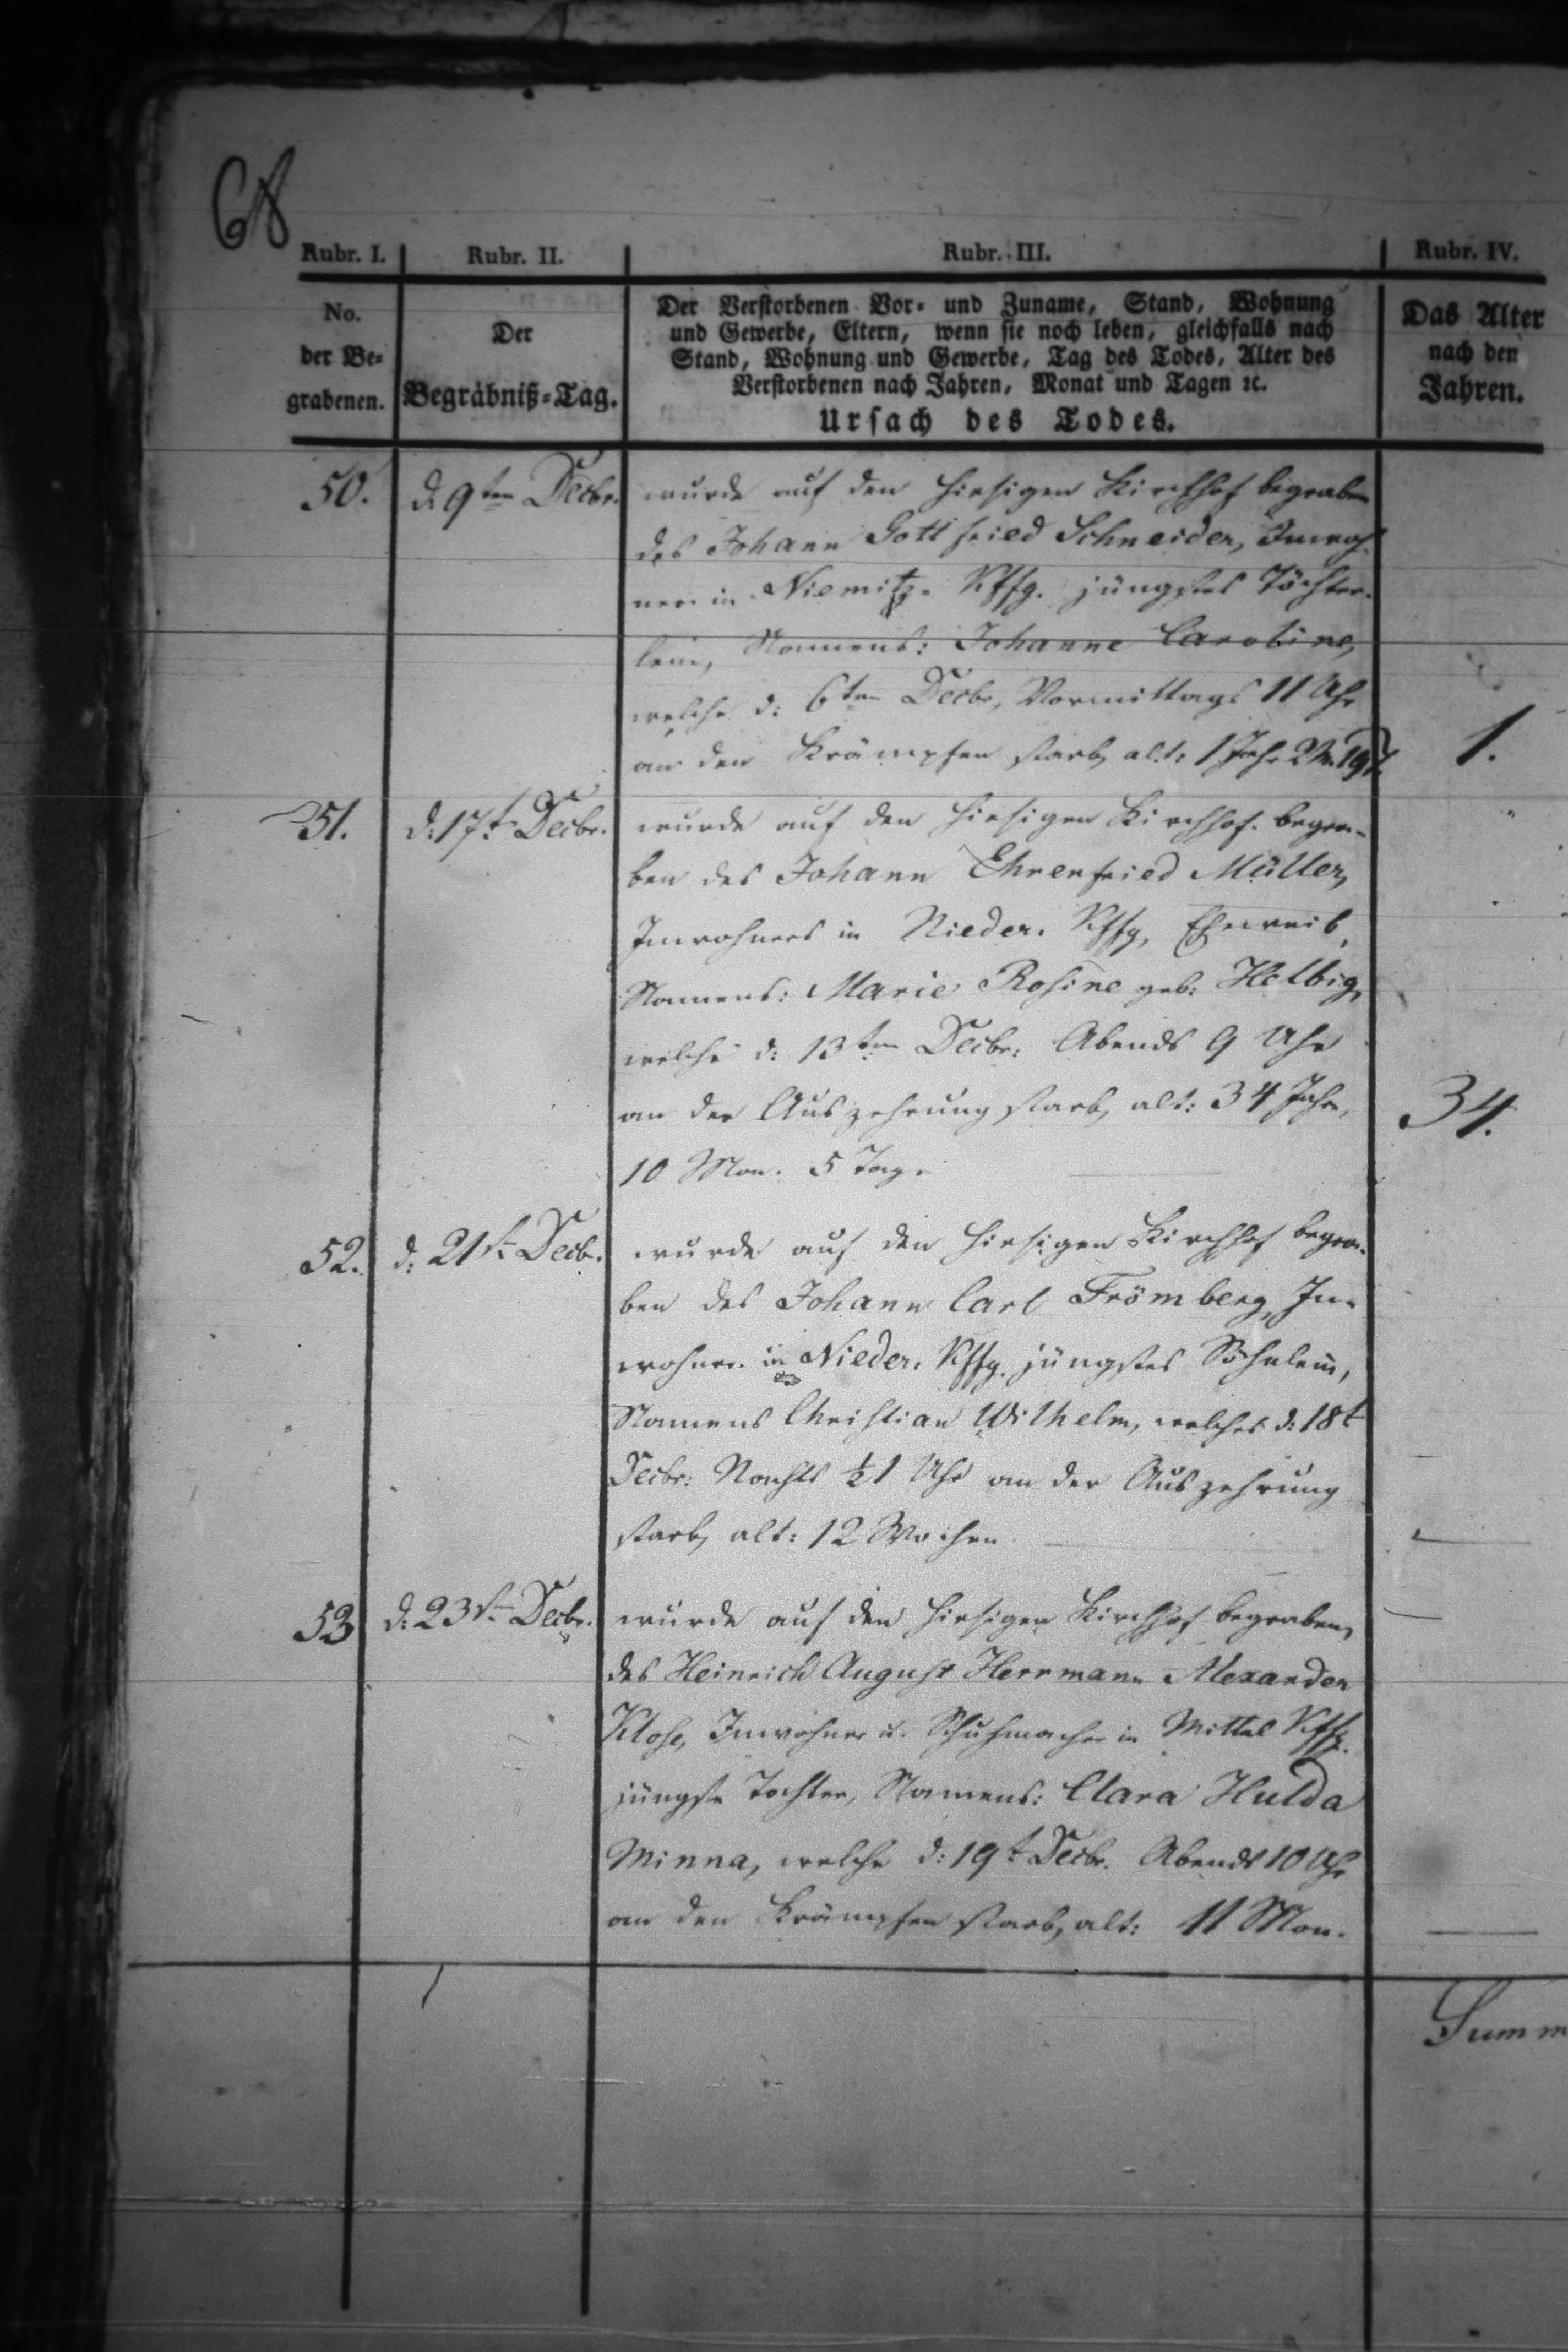 68
Rubr. I. Rubr. II. Rubr. III. Rubr. IV.
No. der Be- grabenen.
Der Begräbniß-Tag.
Der Verstorbenen Vor- und Zuname, Stand, Wohnung
und Gewerbe, Eltern, wenn sie noch leben, gleichfalls nach
Stand, Wohnung und Gewerbe, Tag des Todes, Alter des
Verstorbenen nach Jahren, Monat und Tagen ꝛc.
Ursach des Todes.
Das Alter
nach den
Jahren.
50. d. 9ten Decbr. wurde auf den hiesigen Kirchhof begraben
des Johann Gottfried Schneider, Inwoh-
ner in Niemitz. Kffg. jüngstes Töchter-
lein, Namens: Johanne Caroline,
welche d: 6ten Decbr, Vormittags 11 Uhr
an den Krämpfen starb, alt: 1 Jahr 2 M. 19 T. 1.
51. d: 17t Decbr. wurde auf den hiesigen Kirchhof begra-
ben des Johann Ehrenfried Müller,
Inwohners in Nieder. Kffg, Eheweib,
Namens: Marie Rosine geb: Helbig,
welche d: 13ten Decbr: Abends 9 Uhr
an der Auszehrung starb, alt: 34 Jahr, 34.
10 Mon. 5 Tag.
52. d: 21st Decb. wurde auf den hiesigen Kirchhof begra-
ben des Johann Carl Frömberg, In-
wohner in Nieder. Kffg. jüngstes Söhnlein,
Namens Christian Wilhelm, welches d: 18t
Decbr: Nachts ½1 Uhr an der Auszehrung
starb, alt: 12 Wochen
53 d: 23st Decbr. wurde auf den hiesigen Kirchhof begraben,
des Heinrich August Herrmann Alexander
Klose, Inwohner u. Schuhmacher in Mittel Kffg.
jüngste Tochter, Namens: Clara Hulda
Minna, welche d: 19t Decbr. Abends 10 Uhr
an den Krämpfen starb, alt: 11 Mon.
Summ